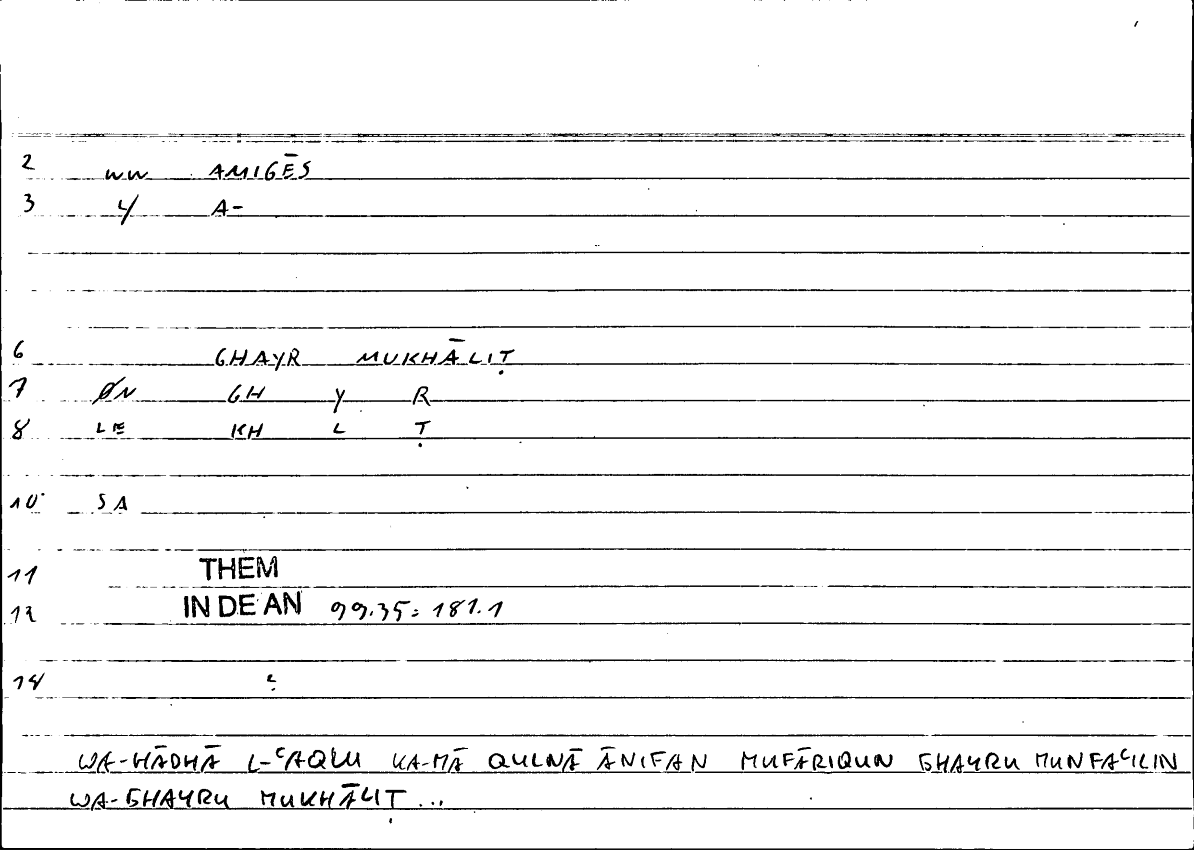 2 WW AMIGĒS
3 4 A-
6 GHAYR MUKHĀLIṬ
7 ØN GH Y R
8 LE KH L Ṭ
10 SA
11 THEM
12 IN DE AN 99.35 = 181.1
14
WA-HĀDHĀ L-ʿAQLU KA-MĀ QULNĀ ĀNIFAN MUFĀRIQUN GHAYRU MUNFAʿILIN
WA-GHAYRU MUKHĀLIṬ ...